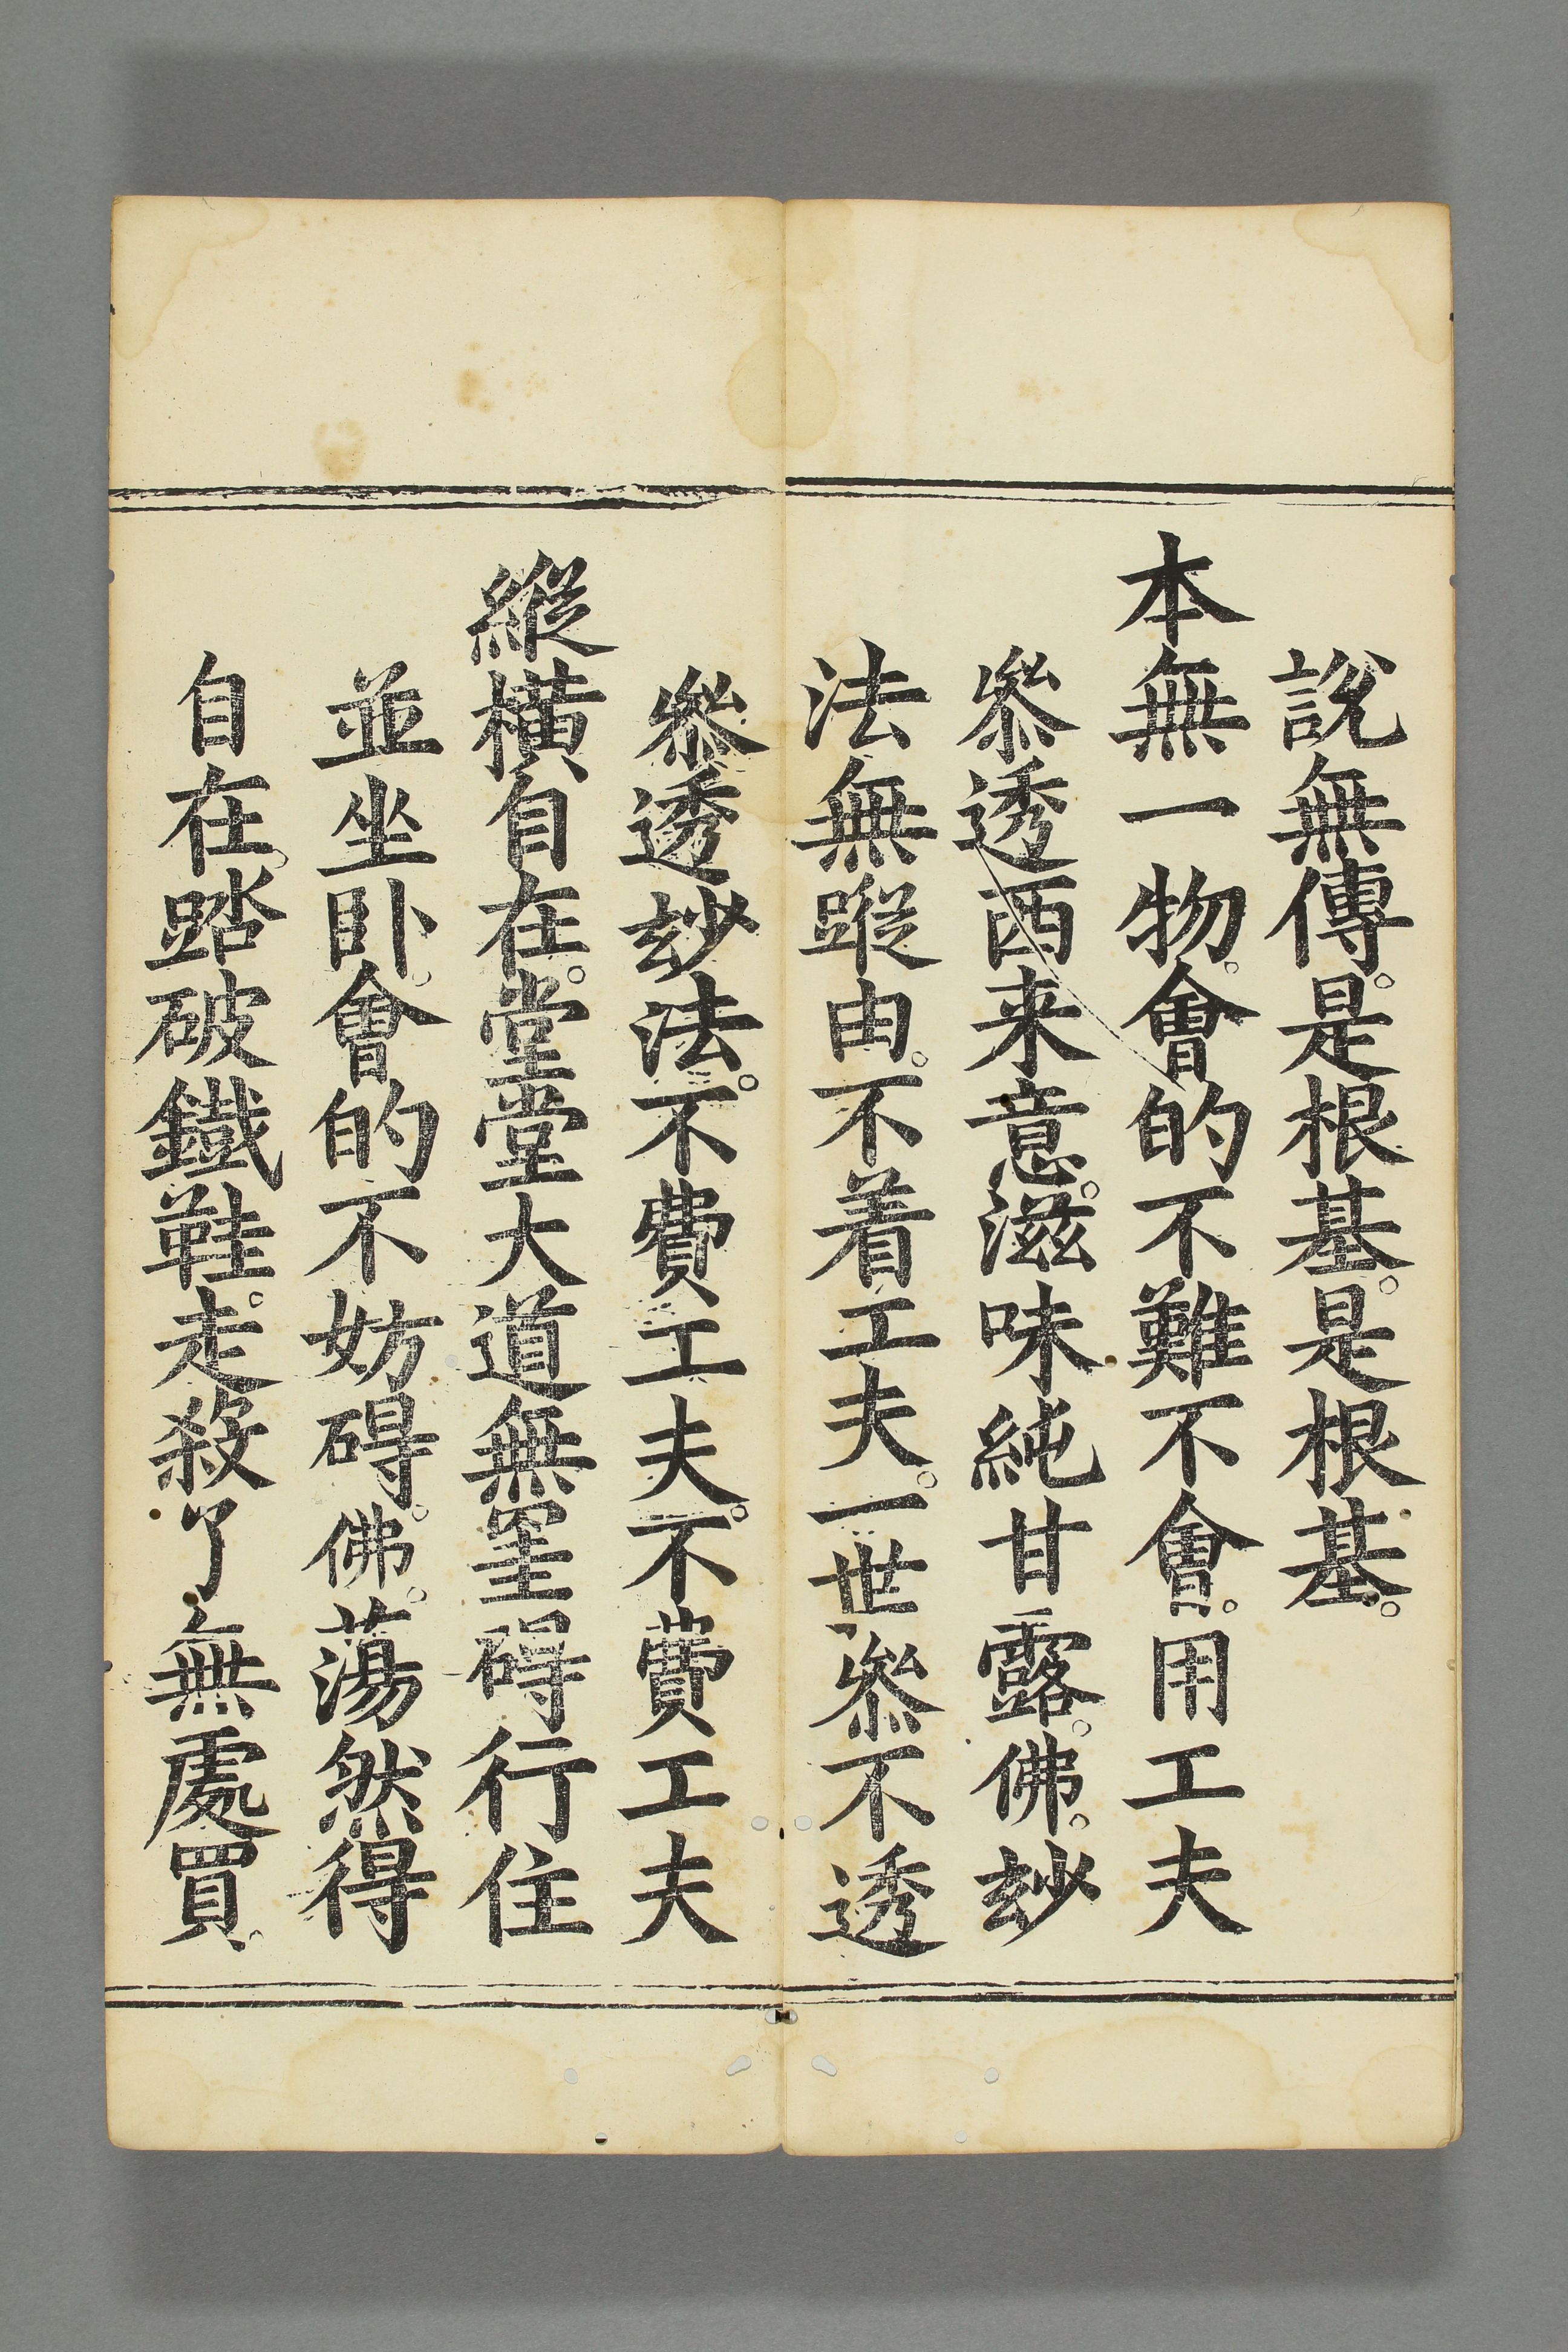 說無傳。是根基。是根基。
本無一物。會的不難不會。用工夫
叅透西来意。滋味純甘露。佛。玅
法無蹤由。不着工夫。一世叅不透
叅透玅法。不費工夫。不費工夫
縱橫自在。堂堂大道無罣碍行住
並坐卧。會的不妨碍。佛。蕩然得
自在。踏破鐵鞋。走殺了無處買。